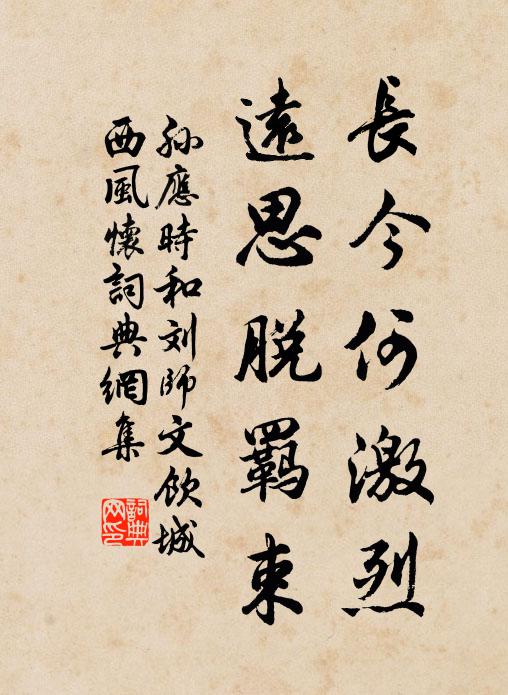 長今何激烈
遠思脫羈束
孫應時和刘師文飲城
西風懷詞典網集
詞典网印